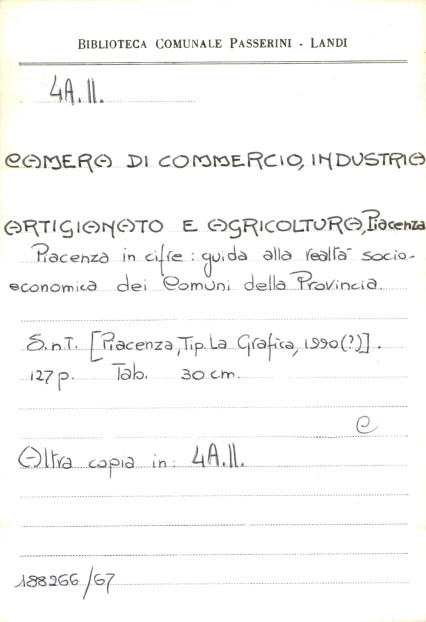 BIBLIOTECA COMUNALE PASSERINI - LANDI
4A.II.
CAMERA DI COMMERCIO, INDUSTRIA
ARTIGIANATO E AGRICOLTURA, Piacenza
Piacenza in cifre : guida alla realtà socio-
economica dei Comuni della Provincia.
S.n.T. [Piacenza, Tip. La Grafica, 1990(?)].
127 p. Tab. 30 cm.
C
Altra copia in: 4A.II.
188266/67